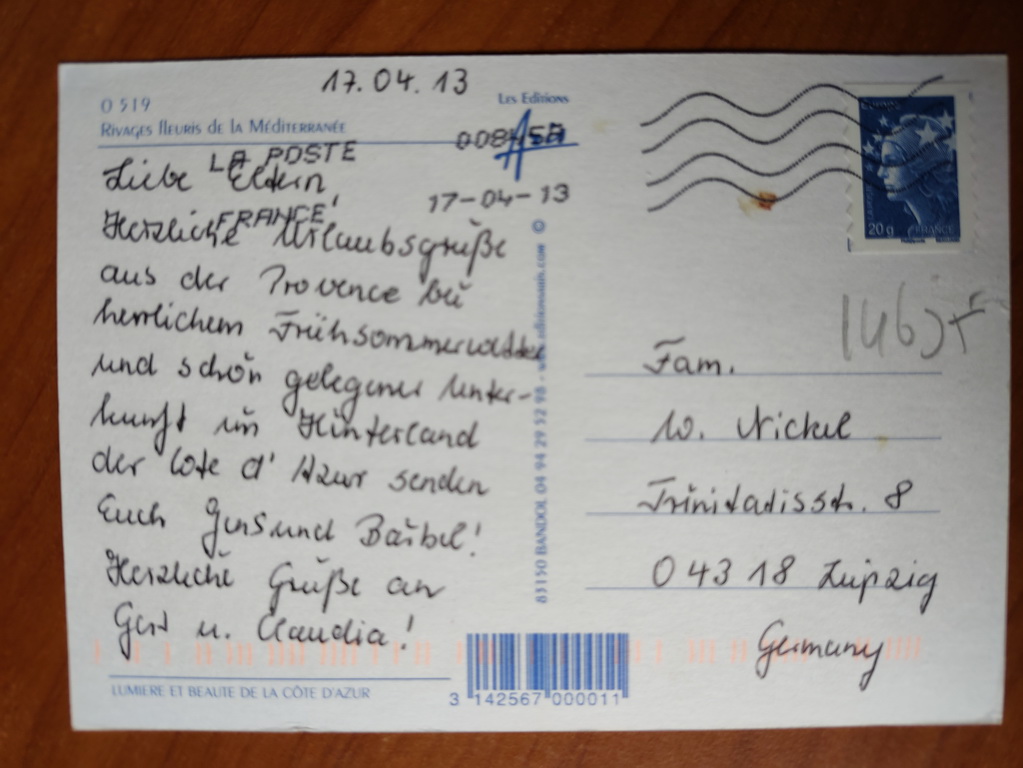 17.04.13
O 519
Les Editions
RIVAGES FLEURIS DE LA MÉDITERRANÉE
LA POSTE
17-04-13
FRANCE
Liebe Eltern,
Herzliche Urlaubsgrüße
aus der Provence bei
herrlichem Frühsommerwetter
und schön gelegener Unter-
kunft im Hinterland
der Cote d'Azur senden
Euch Jens und Bärbel!
Herzliche Grüße an
Gert u. Claudia!
LUMIERE ET BEAUTE DE LA CÔTE D'AZUR
83150 BANDOL 04 94 29 52 98 -
3 142567 000011
Europe
20g
FRANCE
Fam.
W. Nickel
Trinitatisstr. 8
04318 Leipzig
Germany